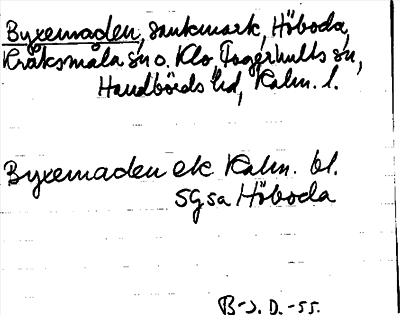 Byxemaden, sankmark, Höboda,
Kråksmåla sn o. Klo, Fagerhults sn,
Handbörds hd, Kalm. l.
Byxemaden ek Kalm. bl.
sgsa Höboda
B-s. D. -55.